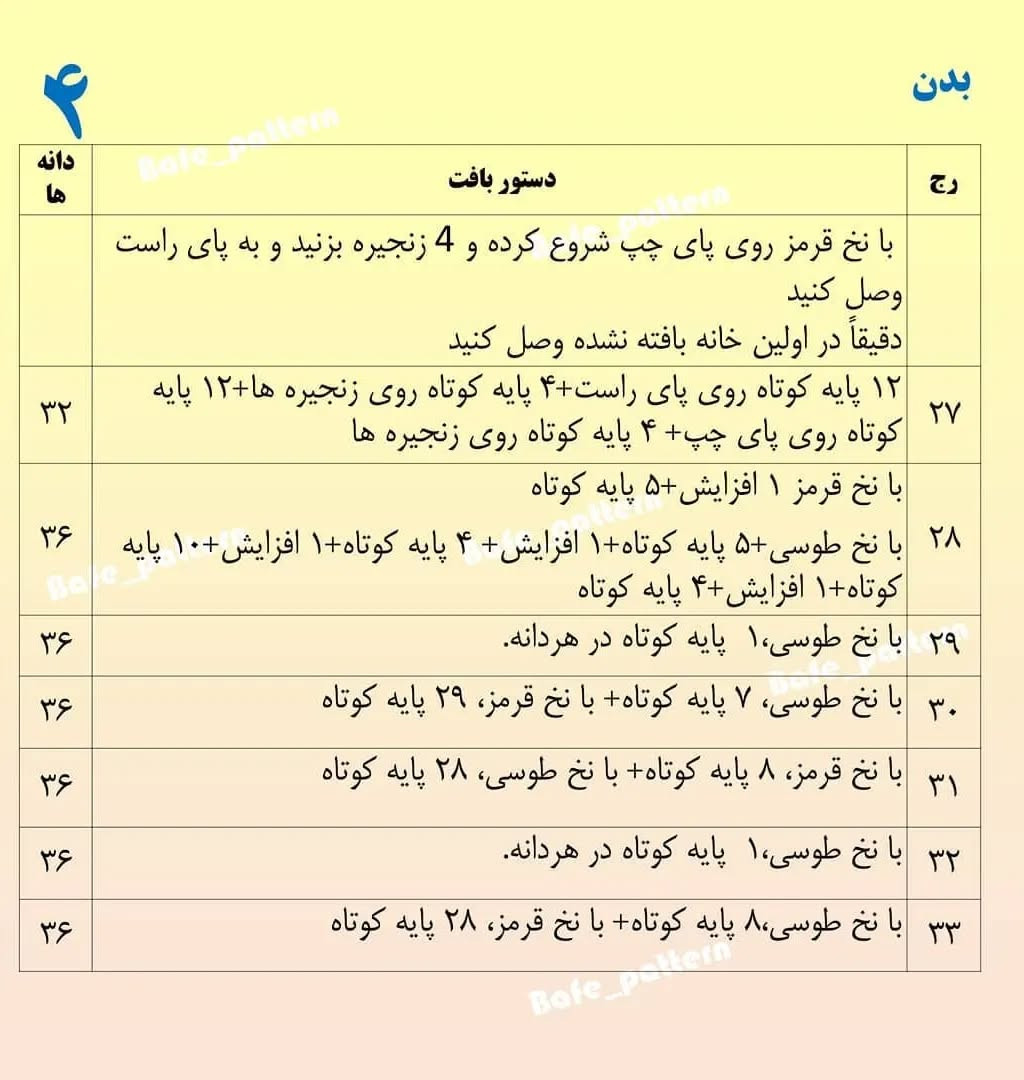 بدن
۴
رج
دستور بافت
دانه
ها
با نخ قرمز روی پای چپ شروع کرده و 4 زنجیره بزنید و به پای راست
وصل کنید
دقیقاً در اولین خانه بافته نشده وصل کنید
۲۷
۱۲ پایه کوتاه روی پای راست+۴ پایه کوتاه روی زنجیره ها+۱۲ پایه
کوتاه روی پای چپ+ ۴ پایه کوتاه روی زنجیره ها
۳۲
۲۸
با نخ قرمز ۱ افزایش+۵ پایه کوتاه
با نخ طوسی+۵ پایه کوتاه+۱ افزایش+ ۴ پایه کوتاه+۱ افزایش+۱۰ پایه
کوتاه+۱ افزایش+۴ پایه کوتاه
۳۶
۲۹
با نخ طوسی،۱ پایه کوتاه در هردانه.
۳۶
۳۰
با نخ طوسی، ۷ پایه کوتاه+ با نخ قرمز، ۲۹ پایه کوتاه
۳۶
۳۱
با نخ قرمز، ۸ پایه کوتاه+ با نخ طوسی، ۲۸ پایه کوتاه
۳۶
۳۲
با نخ طوسی،۱ پایه کوتاه در هردانه.
۳۶
۳۳
با نخ طوسی،۸ پایه کوتاه+ با نخ قرمز، ۲۸ پایه کوتاه
۳۶
Bafe_pattern
Bafe_pattern
Bafe_pattern
Bafe_pattern
Bafe_pattern
Bafe_pattern